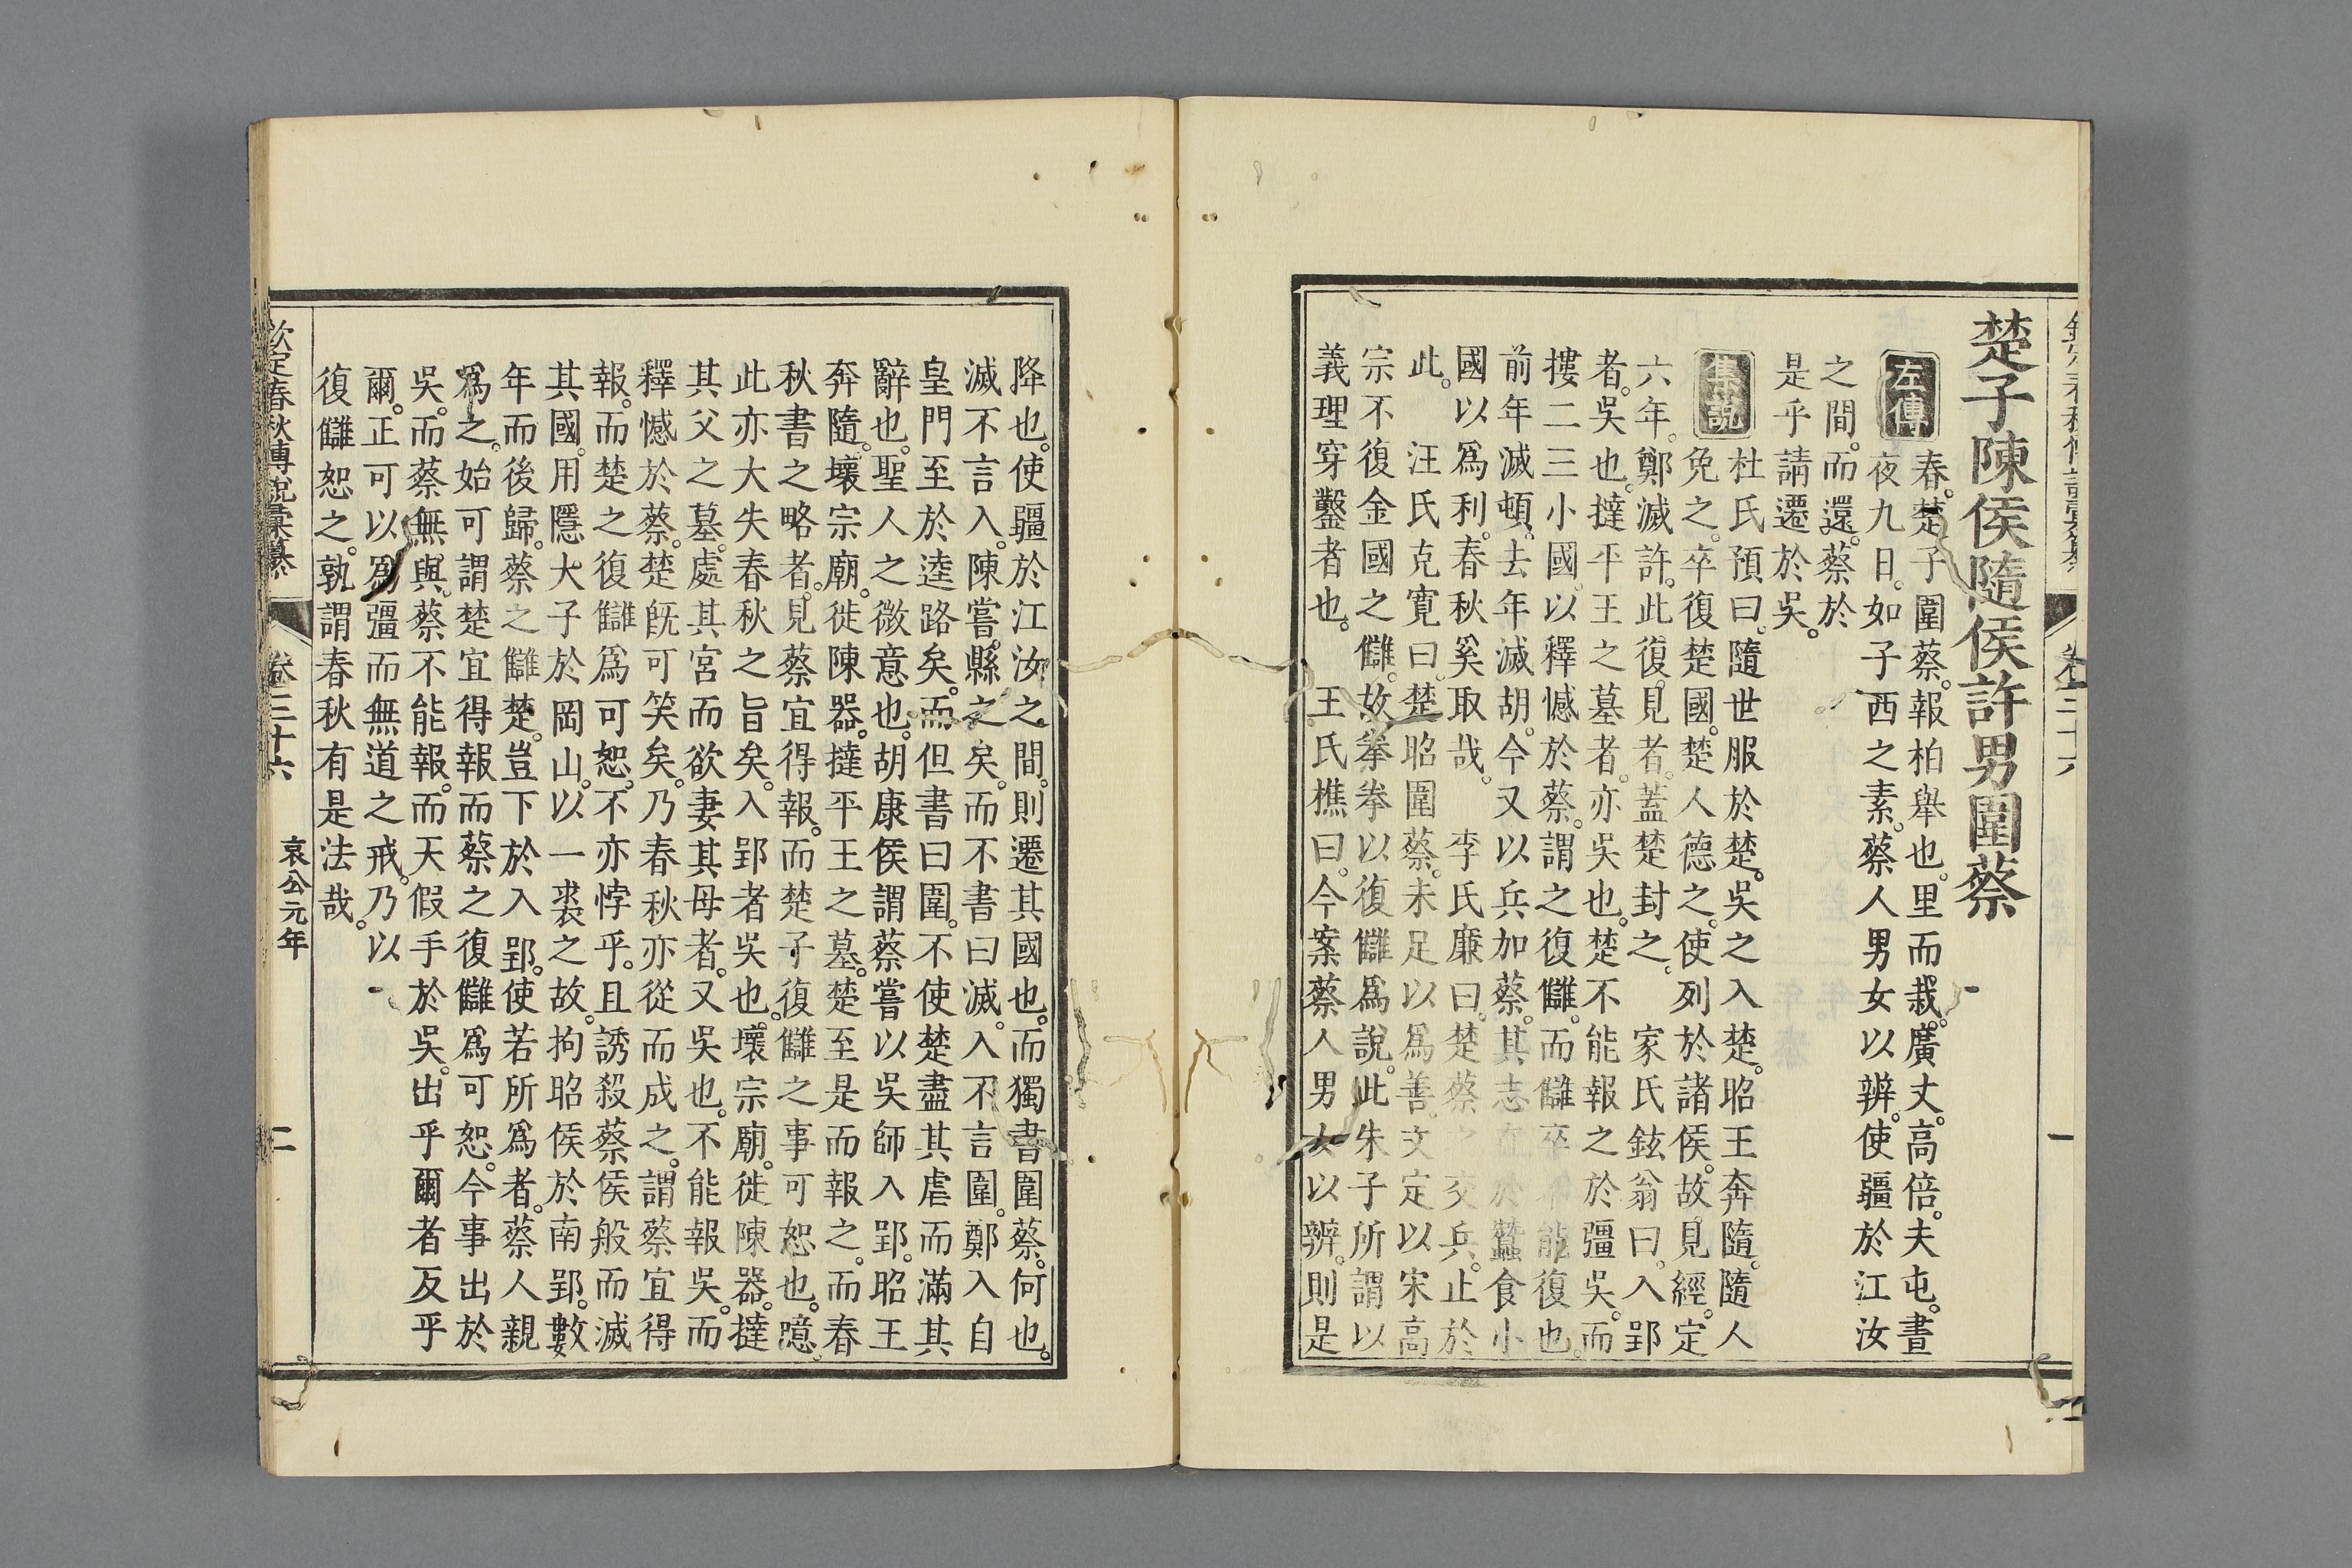 楚子陳侯隨侯許男圍蔡
左傳
春。楚子圍蔡。報柏舉也。里而栽。廣丈。高倍。夫屯。晝
夜九日。如子西之素。蔡人男女以辨。使疆於江汝
之間。而還。蔡於
是乎請遷於吳。
集說
杜氏預曰。隨世服於楚。吳之入楚。昭王奔隨。隨人
免之。卒復楚國。楚人德之。使列於諸侯。故見經。定
六年。鄭滅許。此復見者。蓋楚封之。 家氏鉉翁曰。入郢
者。吳也。撻平王之墓者。亦吳也。楚不能報之於疆吳。而
摟二三小國。以釋憾於蔡。謂之復讎。而讎卒不能復也。
前年滅頓。去年滅胡。今又以兵加蔡。其志在於蠶食小
國以爲利。春秋奚取哉。 李氏廉曰。楚蔡之交兵。止於
此。 汪氏克寬曰。楚昭圍蔡。未足以爲善。文定以宋高
宗不復金國之讎。故拳拳以復讎爲說。此朱子所謂以
義理穿鑿者也。 王氏樵曰。今案蔡人男女以辨。則是
降也。使疆於江汝之間。則遷其國也。而獨書圍蔡。何也。
滅不言入。陳嘗縣之矣。而不書曰滅。入不言圍。鄭入自
皇門至於逵路矣。而但書曰圍。不使楚盡其虐而滿其
辭也。聖人之微意也。胡康侯謂蔡嘗以吳師入郢。昭王
奔隨。壞宗廟。徙陳器。撻平王之墓。楚至是而報之。而春
秋書之略者。見蔡宜得報。而楚子復讎之事可恕也。噫。
此亦大失春秋之旨矣。入郢者吳也。壞宗廟。徙陳器。撻
其父之墓。處其宮而欲妻其母者。又吳也。不能報吳。而
釋憾於蔡。楚旣可笑矣。乃春秋亦從而成之。謂蔡宜得
報。而楚之復讎爲可恕。不亦悖乎。且誘殺蔡侯般而滅
其國。用隱大子於岡山。以一裘之故。拘昭侯於南郢。數
年而後歸。蔡之讎楚。豈下於入郢。使若所爲者。蔡人親
爲之。始可謂楚宜得報而蔡之復讎爲可恕。今事出於
吳。而蔡無與。蔡不能報。而天假手於吳。出乎爾者反乎
爾。正可以爲疆而無道之戒。乃以
復讎恕之。孰謂春秋有是法哉。
欽定春秋傳說彙纂
卷三十六
哀公元年
二